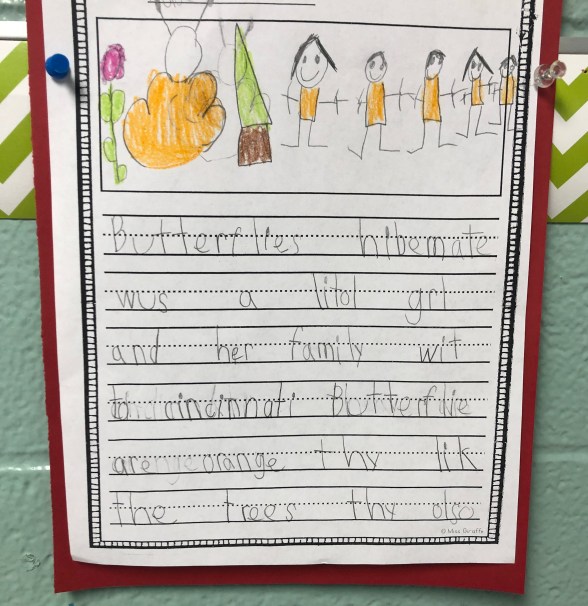 Butterflies hibernate
wus a litol grl
and her family wit
to cincinnati Butterflie
are orange thy lik
the trees thy also
© Miss Giraffe